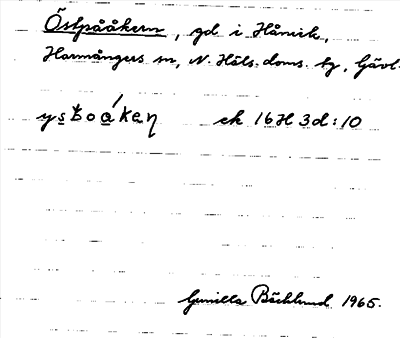 Östpååkern, gd i Hånick,
Harmångers sn, N. Häls. doms. tg, Gävl.
ek 16H 3d:10
Gunilla Bäcklund 1965.